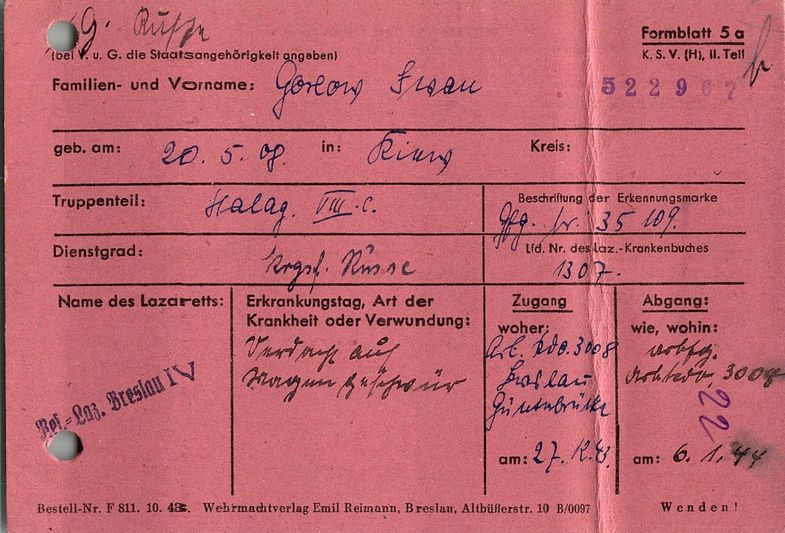 G. Russe
Formblatt 5 a
(bei V. u. G. die Staatsangehörigkeit angeben)
K. S. V. (H), II. Teil
Familien- und Vorname: Gorlow Iwan
522967
geb. am: 20. 5. 08. in: Kiew Kreis:
Truppenteil: Stalag. VIII. C.
Beschriftung der Erkennungsmarke
Gfg. Nr. 35 109.
Dienstgrad: Krgsf. Russe
Lfd. Nr. des Laz.-Krankenbuches
1307.
Name des Lazaretts:
Res.-Laz. Breslau IV
Erkrankungstag, Art der
Krankheit oder Verwundung:
Verdacht auf
Magengeschwür
Zugang
woher:
Arb. Kdo. 3008
Breslau
am: 27. 12. 43.
Abgang:
wie, wohin:
arbfg.
Arbkdo. 3008
22
am: 6. 1. 44
Bestell-Nr. F 811. 10. 43. Wehrmachtverlag Emil Reimann, Breslau, Altbüßerstr. 10 B/0097
Wenden!